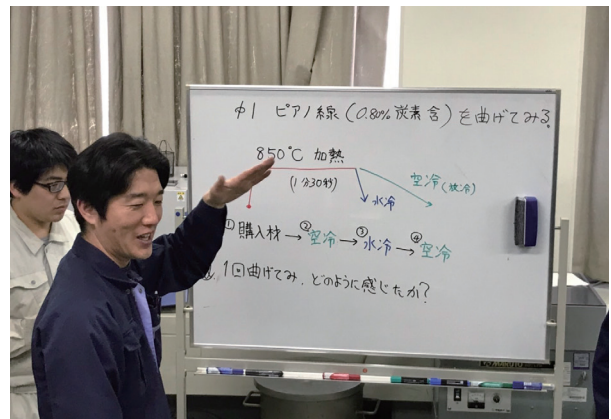 φ1 ピアノ線(0.80%炭素含)を曲げてみる。
850℃ 加熱
(1分30秒)
空冷(放冷)
水冷
①購入材→②空冷→③水冷→④空冷
1回曲げてみ、どのように感じたか?